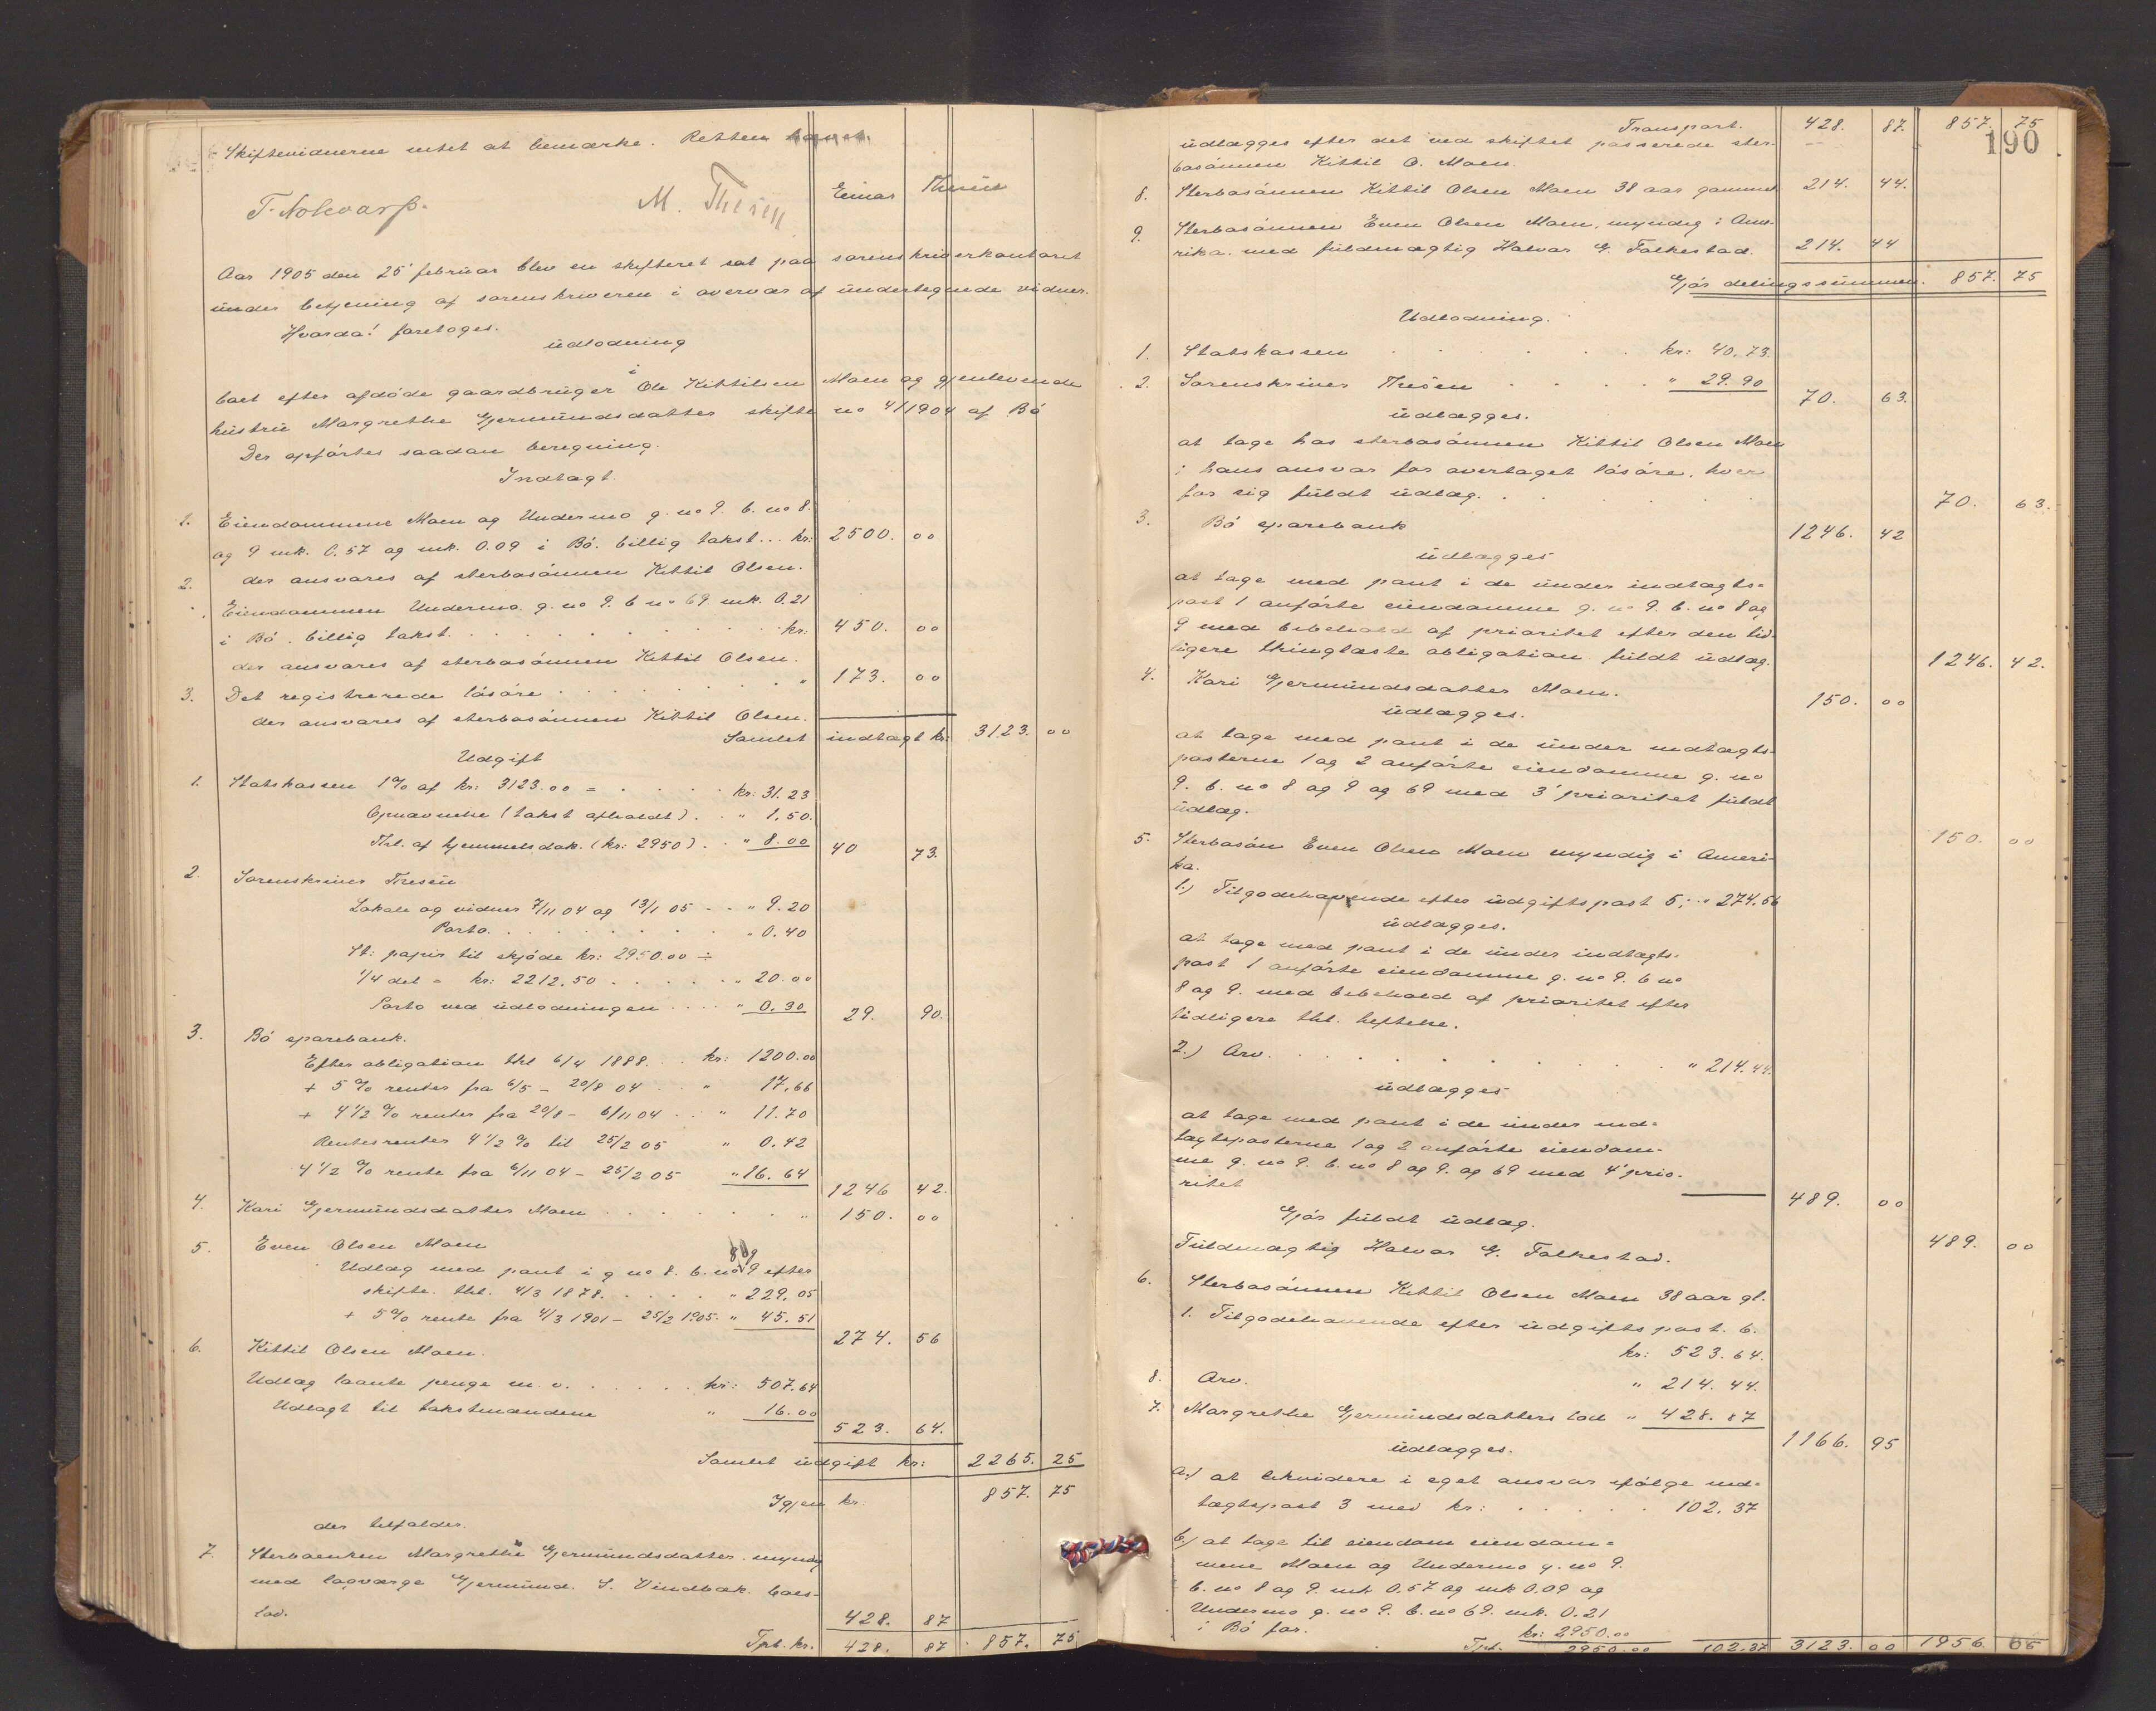 Skiftevidnerne intet at bemærke. Retten hævet.
M. Thesen
Einar Thesen
Aar 1905 den 25' februar blev en skifteret sat paa sorenskriverkontoret
under betjening af sorenskriveren i overvær af undertegnede vidner.
Hvorda! foretoges.
udlodning
i
boet efter afdøde gaardbruger Ole Kittilsen Moen og gjenlevende
hustru Margrethe Gjermundsdatter skifte no 4/1904 af Bø
Der opførtes saadan beregning.
Indtægt.
1. Eiendommene Moen og Undermo g. no 9. b. no 8.
og 9 mk. 0.57 og mk. 0.09 i Bø. billig takst... kr: 2500. 00
der ansvares af sterbosønnen Kittil Olsen.
2. Eiendommen Undermo. g. no 9. b no 69 mk. 0.21
i Bø. billig takst. . . . . kr: 450. 00
der ansvares af sterbosønnen Kittil Olsen.
3. Det registrerede løsøre . . . . " 173. 00
der ansvares af sterbosønnen Kittil Olsen.
Samlet indtægt kr: 3123. 00
Udgift
1. Statskassen 1% af kr: 3123.00 = . . . kr: 31.23
Opnævnelse (takst afholdt) . . " 1.50.
Thl. af hjemmelsdok. (kr: 2950) . . " 8.00 40 73.
2. Sorenskriver Thesen
Lokale og vidner 7/11 04 og 13/1 05 . . " 9.20
Porto. . . . . " 0.40
St: papir til skjøde kr: 2950.00 ÷
1/4 del = kr: 2212.50 . . . . " 20.00
Porto ved udlodningen . . . " 0.30 29. 90.
3. Bø sparebank.
Efter obligation thl 6/4 1888. . . kr: 1200.00
+ 5 % renter fra 6/5 - 20/8 04 . . " 17.66
+ 4 1/2 % renter fra 20/8 - 6/11 04 . . " 11.70
Rentesrenter 4 1/2 % til 25/2 05 " 0.42
4 1/2 % rente fra 6/11 04 - 25/2 05 " 16.64 1246 42.
4. Kari Gjermundsdatter Moen . . . . " 150. 00
5. Even Olsen Moen
Udlæg med pant i g no 8. b. no 9 efter
skifte. thl. 4/3 1878. . . . . " 229.05
+ 5% rente fra 4/3 1901 - 25/2 1905. " 45.51
274. 56
6. Kittil Olsen Moen.
Udlæg laante penge m. v. . . . . kr: 507.64
Udlagt til takstmændene " 16.00
523. 64.
Samlet udgift kr: 2265. 25
Igjen kr. 857. 75
der tilfalder.
7. Sterboenken Margrethe Gjermundsdatter. myndig
med lagværge Gjermund. S. Vindbæk. boes-
lod. 428. 87
Tpt. kr. 428. 87 857. 75
190
Transport. 428. 87. 857. 75
udlægges efter det ved skiftet passerede ster-
bosønnen Kittil O. Moen.
8. Sterbosønnen Kittil Olsen Moen 38 aar gammel 214. 44.
9. Sterbosønnen Even Olsen Moen, myndig i Ame-
rika. med fuldmægtig Halvor G. Folkestad. 214. 44
Gjør delingssummen. 857. 75
Udlodning.
1. Statskassen . . . . kr: 40.73.
2. Sorenskriver Thesen . . . . " 29.90 70. 63.
udlægges.
at tage hos sterbosønnen Kittil Olsen Moen
i hans ansvar for overtaget løsøre. hver
for sig fuldt udlæg. . . . . 70. 63.
3. Bø sparebank 1246. 42
udlægges
at tage med pant i de under indtægts-
post 1 anførte eiendomme g. no 9. b. no 8 og
9 med bibehold af prioritet efter den tid-
ligere thinglæste obligation fuldt udlæg. 1246. 42.
4. Kari Gjermundsdatter Moen. 150. 00
udlægges.
at tage med pant i de under indtægts-
posterne 1 og 2 anførte eiendomme g. no
9. b. no 8 og 9 og 69 med 3' prioritet fuldt
udlæg. 150. 00
5. Sterbosøn Even Olsen Moen myndig i Ameri-
ka.
1.) Tilgodehavende efter udgiftspost 5: " 274.56
udlægges.
at tage med pant i de under indtægts-
post 1 anførte eiendomme g. no 9. b no
8 og 9. med bibehold af prioritet efter
tidligere thl. heftelse.
2.) Arv. . . . . " 214.44.
udlægges
at tage med pant i de under ind-
tægtsposterne 1 og 2 anførte eiendom-
me g. no 9. b. no 8 og 9. og 69 med 4' prio-
ritet 489. 00
Gjør fuldt udlæg.
Fuldmægtig Halvor G. Folkestad. 489. 00
6. Sterbosønnen Kittil Olsen Moen 38 aar gl.
1. Tilgodehavende efter udgiftspost. 6.
kr: 523.64.
8. Arv. " 214.44.
7. Margrethe Gjermundsdatters lod " 428.87
1166. 95
udlægges.
a.) at likvidere i eget ansvar ifølge ind-
tægtspost 3 med kr: . . . . 102.37
b.) at tage til eiendom eiendom-
mene Moen og Undermo g. no 9.
b. no 8 og 9. mk 0.57 og mk 0.09 og
Undermo g. no 9. b. no 69. mk. 0.21
i Bø for. kr: 2950.00
Tpt. 2950.00 102.37 3123. 00 1956. 05